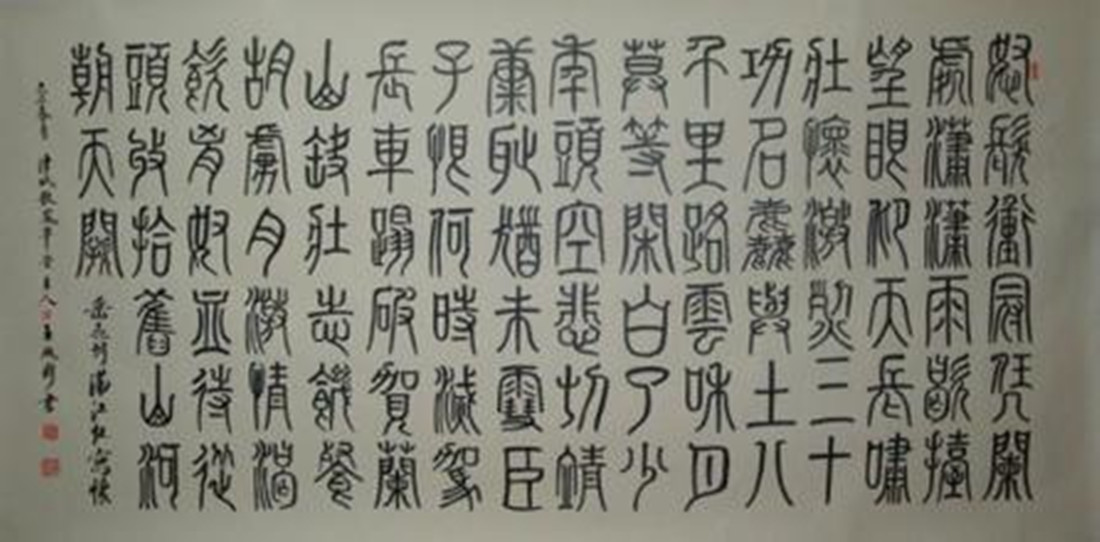 怒髮衝冠凭闌
處瀟瀟雨歇擡
望眼仰天長嘯
壯懷激烈三十
功名塵與土八
千里路雲和月
莫等閑白了少
年頭空悲切靖
康恥猶未雪臣
子恨何時滅駕
長車蹋破賀蘭
山缺壯志飢餐
胡虜肉激情渴
飲匈奴並待從
頭收拾舊山河
朝天闕
岳飛詞滿江紅